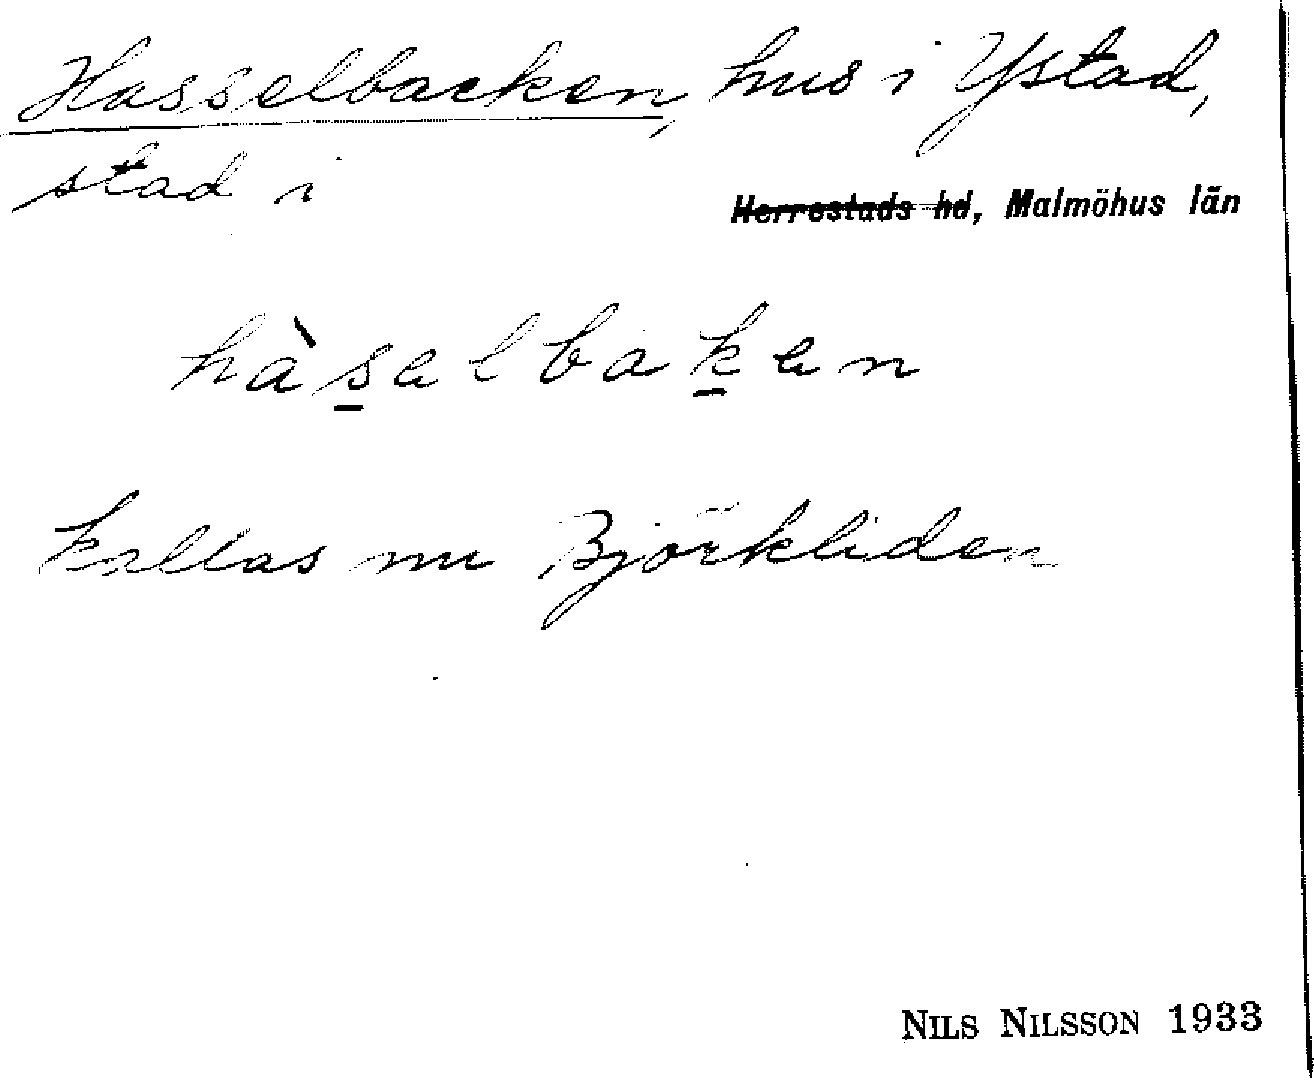 Hasselbacken, hus i Ystad,
stad i
Herrestads hd, Malmöhus län
hàselbaken
Kallas nu Björkliden
NILS NILSSON 1933